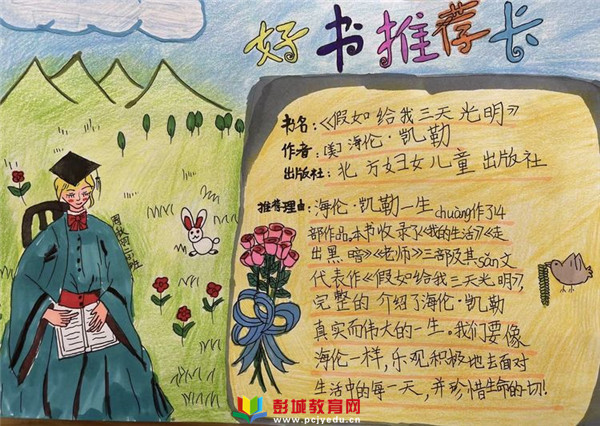 好书推荐卡
书名:《假如给我三天光明》
作者:[美]海伦·凯勒
出版社:北方妇女儿童出版社
推荐理由:海伦·凯勒一生chuàng作了14
部作品。本书收录了《我的生活》《走
出黑暗》《老师》三部及其sǎn文
代表作《假如给我三天光明》,
完整的介绍了海伦·凯勒
真实而伟大的一生。我们要像
海伦一样,乐观积极地去面对
生活中的每一天,并珍惜生命的一切!
彭城教育网
www.pcjyedu.cn